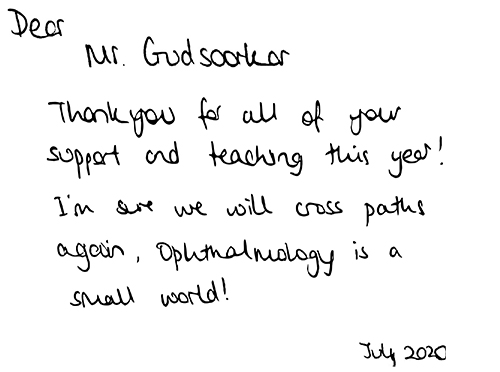 Dear
Mr. Gudsoorkar
Thank you for all of your
support and teaching this year!
I'm sure we will cross paths
again, Ophthalmology is a
small world!
July 2020